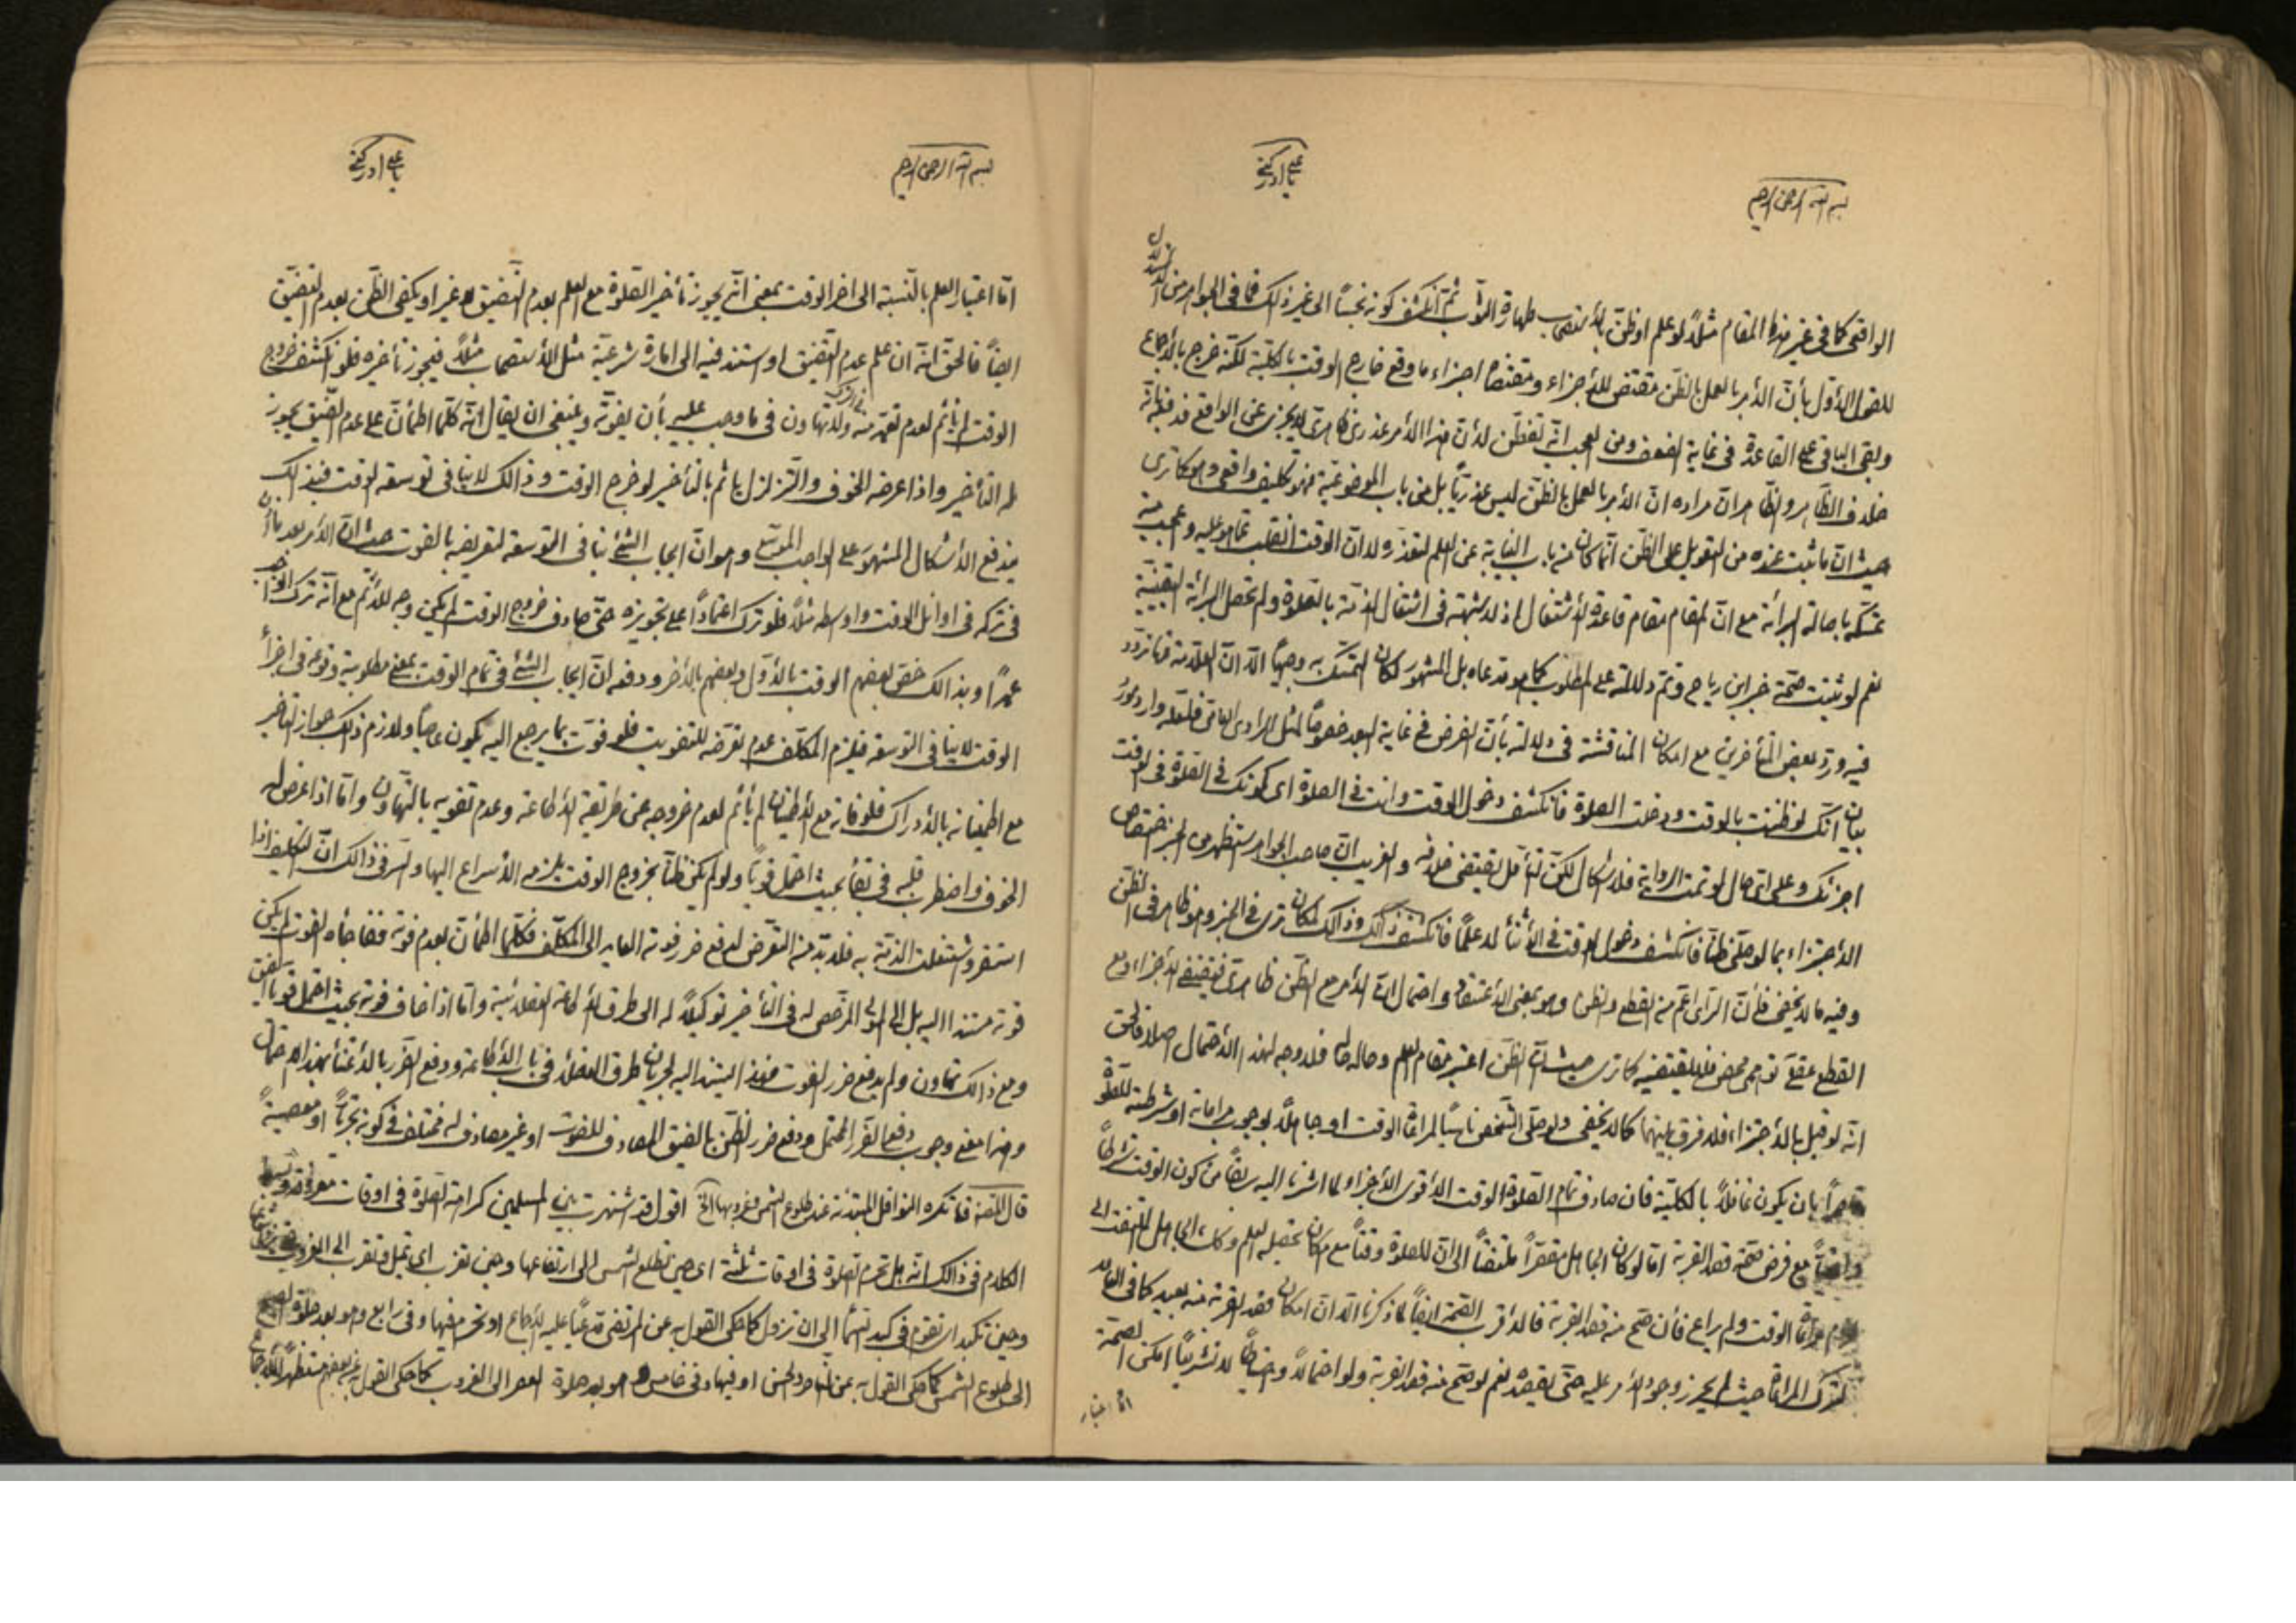 بسم الله الرحمن الرحيم
يا علي ادركني
الواقعى كما فى غير هذا المقام مثلاً لو علم او ظن بالأستصحاب طهارة الثوب ثم انكشف كونه نجساً الى غير ذلك فما فى الجواهر من
للقول الأول بأن الأمر بالعمل بالظن مقتض للأجزاء ومقتضاه اجزاء ما وقع خارج الوقت بالكلية لكنه خرج بالأجماع
وبقى الباقى على القاعدة فى غاية الضعف ومن العجب انه تفطن لأن هذا الأمر عذرى ظاهرى لا يجزى عن الواقع
خلاف الظاهر والظاهر ان مراده ان الأمر بالعمل بالظن ليس عذرياً بل من باب الموضوعية فهو تكليف واقعى وهو كما ترى
حيث ان ما ثبت عنده من التعويل على الظن انما كان من باب النيابة عن العلم لتعذره لا ان الوقت انقلب عما هو عليه وعجب منه
تمسكه باصالة البرائة مع ان المقام مقام قاعدة الأشتغال اذ لا شبهة فى اشتغال الذمة بالصلوة ولم تحصل البرائة اليقينية
نعم لو ثبتت صحة خبر ابن رياح وتم دلالته على المطلوب كما هو مدعاه بل المشهور لكان التمسك به وجيهاً الا ان العلامة مما تردد
فيه ورد بعض المتأخرين مع امكان المناقشة فى دلالته بأن الفرض فى غاية البعد خصوصاً لمثل الراوى العامى فلعله وارد مورد
بيان انك لو ظننت بالوقت ودخلت الصلوة فانكشف دخول الوقت وانت فى الصلوة اى كونك فى الصلوة فى الوقت
اجزئك وعلى اى حال لو تمت الرواية فلا اشكال لكن التأمل يقتضى خلافه والغريب ان صاحب الجواهر استظهر من الخبر اختصاص
الأجتزاء بما لو صلى ظناً فانكشف دخول الوقت فى الأثناء لا علماً فانكشف ذلك وذالك لمكان ترى فى الخبر وهو ظاهر فى الظن
وفيه ما لا يخفى فأن الرأى اعم من القطع والظن وهو بمعنى الأعتقاد واحتمال ان الأمر مع الظن ظاهرى فيقتضى الأجزاء ومع
القطع عقلى توهمى محض فلا يقتضيه كما ترى حيث ان الظن اعتبر مقام العلم وحاله حاله فلا وجه لهذا الأحتمال اصلا فالحق
انه لو قيل بالأجتزاء فلا فرق بينهما كما لا يخفى ولو صلى الشخص ناسياً لمراعاة الوقت او جاهلاً بوجوب مراعاته او شرطيته للصلوة
قاصراً بان يكون غافلاً بالكلية فان صادف تمام الصلوة الوقت الأقوى الأجزاء لما اشرنا اليه سابقاً من كون الوقت شرطاً
واقعياً مع فرض صحة قصد القربة اما لو كان الجاهل مقصراً ملتفتاً الى ان للصلوة وقتاً مع امكان تحصيل العلم وكذا الجاهل الملتفت الى
مراعاة الوقت ولم يراع فأن صح منه قصد القربة فالأقرب الصحة ايضاً لما ذكرنا الا ان امكان قصد القربة منه بعيد كما فى العامد
لترك المراعاة حيث لم يحرز وجود الأمر عليه حتى يقصده نعم لو صح منه قصد القربة ولو احتمالاً واحتياطاً لا تشريعاً امكن الصحة
اما اعتبار
بسم الله الرحمن الرحيم
يا علي ادركني
اما اعتبار العلم بالنسبة الى اخر الوقت بمعنى انه يجوز تأخير الصلوة مع العلم بعدم التضييق لا غير او يكفى الظن بعدم التضيق
ايضاً فالحق انه ان علم عدم التضيق او استند فيه الى امارة شرعية مثل الأستصحاب مثلاً فيجوز تأخيره فلو انكشف خروج
الوقت لم يأثم لعدم تعمد منه ولا تهاون فى ما وجب عليه بأن يفوته وينبغى ان يقال انه كلما اطمأن على عدم الضيق يجوز
له التأخير واذا عرضه الخوف والتزلزل يأثم بالتأخير لو خرج الوقت وذالك لا ينافى توسعة الوقت فبذلك
يندفع الأشكال المشهور على الواجب الموسع وهو ان ايجاب الشئ ينافى التوسعة لتعريضه بالفوت حيث ان الأمر بعد ما اذن
فى تركه فى اوائل الوقت واوسطه مثلاً فلو ترك اعتماداً على تجويزه حتى صادف خروج الوقت لم يكن وجه للأثم مع انه ترك الواجب
عمداً وبذالك خص بعضهم الوقت بالأول وبعضهم بالأخر ودفعه ان ايجاب الشئ فى تمام الوقت بمعنى مطلوبية وقوعه فى اجزاء
الوقت لا ينافى التوسعة فيلزم المكلف عدم تعرضه للتفويت فلو فوت بما يرجع اليه يكون عاصياً ولازم ذلك جواز التأخير
مع اطمينانه بالأدراك فلو فاته مع الأطمينان لم يأثم لعدم خروجه عن طريقة الأطاعة وعدم تفويته بالتهاون واما اذا عرض له
الخوف واضطرب قلبه فى بقائه بحيث احتمل قوياً ولو لم يكن ظناً بخروج الوقت يلزمه الأسراع اليها والسر فى ذالك ان التكليف اذا
استقر واشتغلت الذمة به فلا بد منه التعرض لدفع ضرر فوته العايد الى المكلف فكلما اطمأن بعدم فوته ففاجأه الفوت لم يكن
فوته مستندا اليه بل الى المولى المرخص له فى التأخير توكيلاً له الى طرق الأطاعة العقلائية واما اذا خاف فوته بحيث احتمل قوياً
ومع ذالك تهاون ولم يدفع ضرر الفوت فهذا استند اليه لجريان طرق العقلاء فى باب الأطاعة ودفع الضرر بالأعتناء بهذا الاحتمال
وهذا معنى وجوب دفع الضرر المحتمل ودفع ضرر الظن بالضيق المصادف للفوت او غير مصادف له مختلف فى كونه تجرياً او معصيةً
قال المصنف فما تكره النوافل المبتدئة عند طلوع الشمس وغروبها الخ اقول قد اشتهرت بين المسلمين كراهة الصلوة فى اوقات معروفة
الكلام فى ذالك انه هل تحرم الصلوة فى اوقات ثلثة اى حين تطلع الشمس الى ارتفاعها وحين تغرب اى تميل وتقرب الى الغروب
وحين تكبد ان تقوم فى كبد السماء الى ان تزول كما حكى القول به عن المرتضى مدعياً عليه الأجماع او تحرم فيها وفى رابع وهو بعد صلوة
الى طلوع الشمس كما حكى القول به عن الناصر والحسن او فيها وفى خامس وهو بعد صلوة العصر الى الغروب كما حكى القول به عن بعضهم